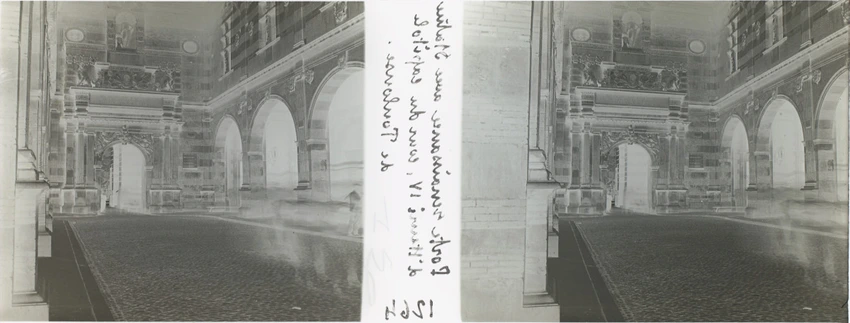 Porte renaissance avec Statue
d'Henri IV, cour du capitole
de Toulouse.